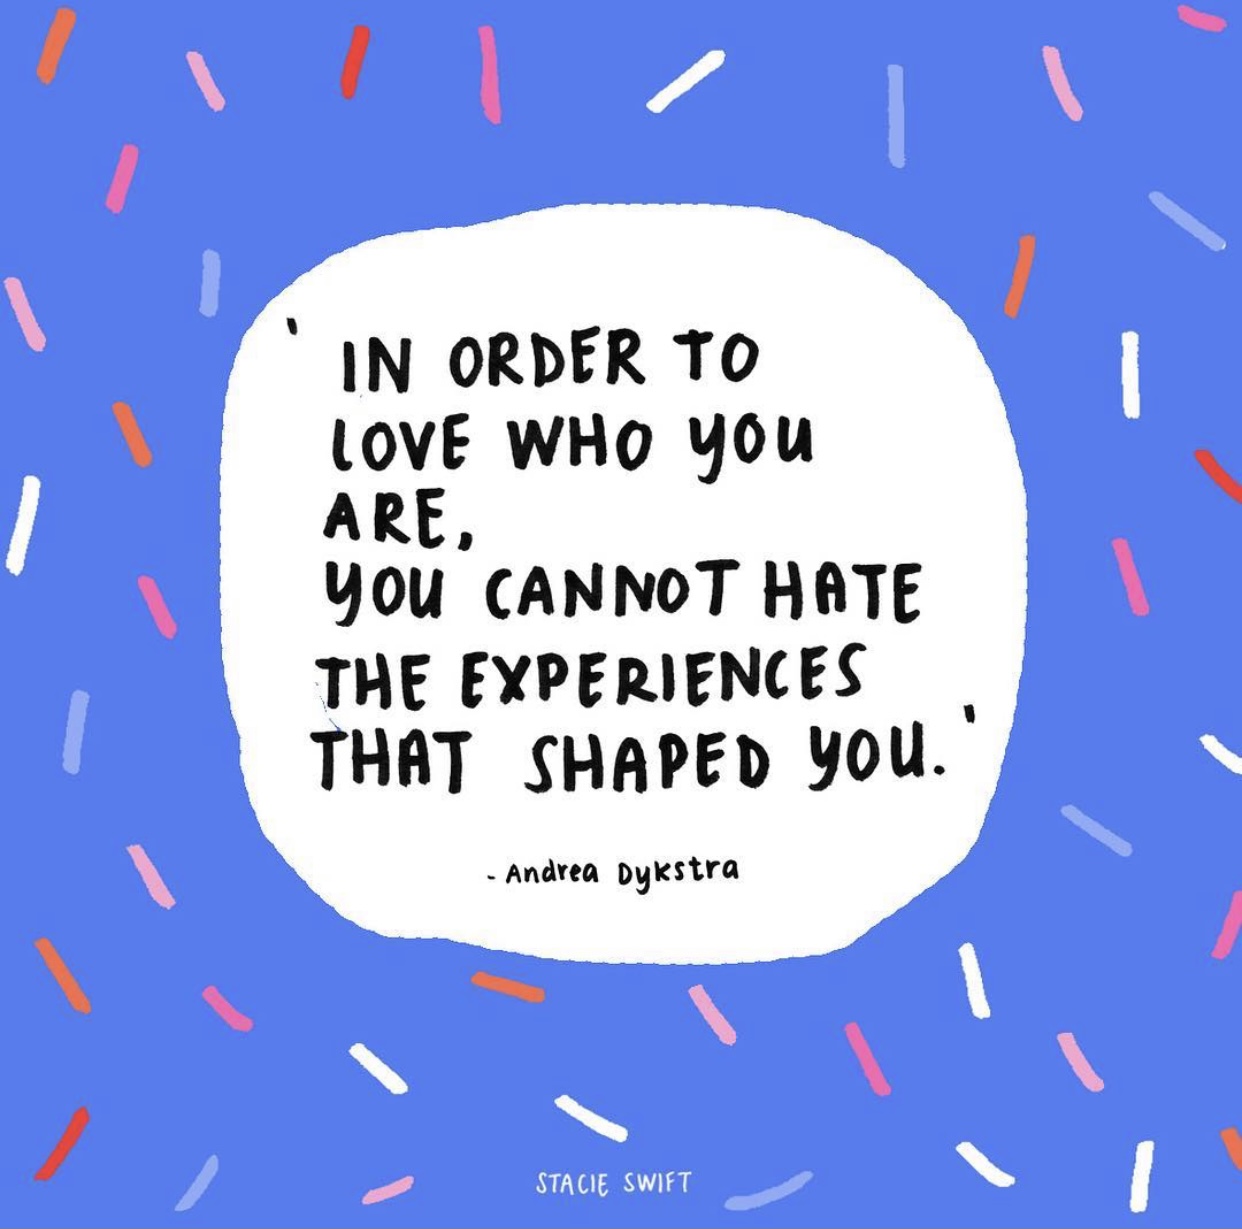 ' IN ORDER TO
LOVE WHO YOU
ARE,
YOU CANNOT HATE
THE EXPERIENCES
THAT SHAPED YOU. '
- Andrea Dykstra
STACIE SWIFT